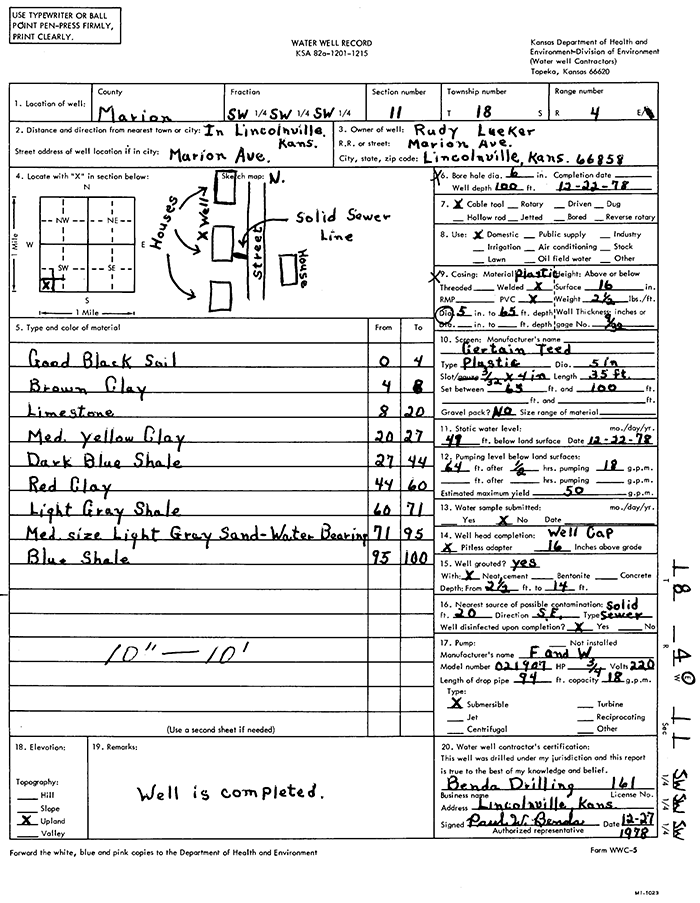 USE TYPEWRITER OR BALL
POINT PEN-PRESS FIRMLY,
PRINT CLEARLY.
WATER WELL RECORD
KSA 82a-1201-1215
Kansas Department of Health and
Environment-Division of Environment
(Water well Contractors)
Topeka, Kansas 66620
1. Location of well: County Marion Fraction SW 1/4 SW 1/4 SW 1/4 Section number 11 Township number T 18 S Range number R 4 E/W
2. Distance and direction from nearest town or city: In Lincolnville, Kans.
Street address of well location if in city: Marion Ave.
3. Owner of well: Rudy Lueker
R.R. or street: Marion Ave.
City, state, zip code: Lincolnville, Kans. 66858
4. Locate with "X" in section below:
N
NW NE
W E
SW SE
X
S
1 Mile
1 Mile
Sketch map: N.
Houses
X Well
Street
House
Solid Sewer
Line
5. Type and color of material From To
Good Black Soil 0 4
Brown Clay 4 8
Limestone 8 20
Med. Yellow Clay 20 27
Dark Blue Shale 27 44
Red Clay 44 60
Light Gray Shale 60 71
Med. size Light Gray Sand-Water Bearing 71 95
Blue Shale 95 100
10" — 10'
(Use a second sheet if needed)
X 6. Bore hole dia. 6 in. Completion date
Well depth 100 ft. 12-22-78
7. X Cable tool Rotary Driven Dug
Hollow rod Jetted Bored Reverse rotary
8. Use: X Domestic Public supply Industry
Irrigation Air conditioning Stock
Lawn Oil field water Other
X 9. Casing: Material Plastic Height: Above or below
Threaded Welded X Surface 16 in.
RMP PVC X Weight 2 1/2 lbs./ft.
Dia. 5 in. to 65 ft. depth Wall Thickness: inches or
Dia. in. to ft. depth gage No. 9/32
10. Screen: Manufacturer's name
Certain Teed
Type Plastic Dia. 5 in
Slot/gauze 3/32 x 4 in Length 35 ft.
Set between 65 ft. and 100 ft.
ft. and ft.
Gravel pack? No Size range of material
11. Static water level: mo./day/yr.
49 ft. below land surface Date 12-22-78
12. Pumping level below land surfaces:
64 ft. after 1/2 hrs. pumping 18 g.p.m.
ft. after hrs. pumping g.p.m.
Estimated maximum yield 50 g.p.m.
13. Water sample submitted: mo./day/yr.
Yes X No Date
14. Well head completion: Well Cap
X Pitless adapter 16 Inches above grade
15. Well grouted? yes
With: X Neat cement Bentonite Concrete
Depth: From 2 1/2 ft. to 14 ft.
16. Nearest source of possible contamination: Solid
ft. 20 Direction S.E. Type Sewer
Well disinfected upon completion? X Yes No
17. Pump: Not installed
Manufacturer's name F and W
Model number 021907 HP 3/4 Volts 220
Length of drop pipe 94 ft. capacity 18 g.p.m.
Type:
X Submersible Turbine
Jet Reciprocating
Centrifugal Other
18. Elevation:
Topography:
Hill
Slope
X Upland
Valley
19. Remarks:
Well is completed.
20. Water well contractor's certification:
This well was drilled under my jurisdiction and this report
is true to the best of my knowledge and belief.
Benda Drilling 161
Business name License No.
Address Lincolnville, Kans.
Signed Paul W. Benda Date 12-27
Authorized representative 1978
Forward the white, blue and pink copies to the Department of Health and Environment
Form WWC-5
T 18
R 4 E W
Sec 11
SW 1/4 SW 1/4 SW 1/4
MI-1023